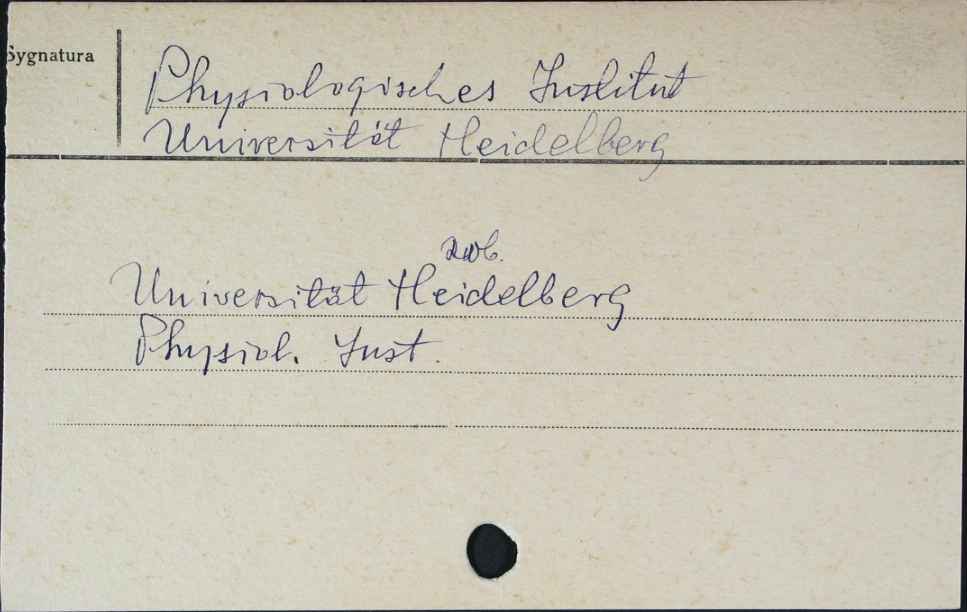 Sygnatura
Physiologisches Institut
Universität Heidelberg
zob.
Universität Heidelberg
Physiol. Inst.